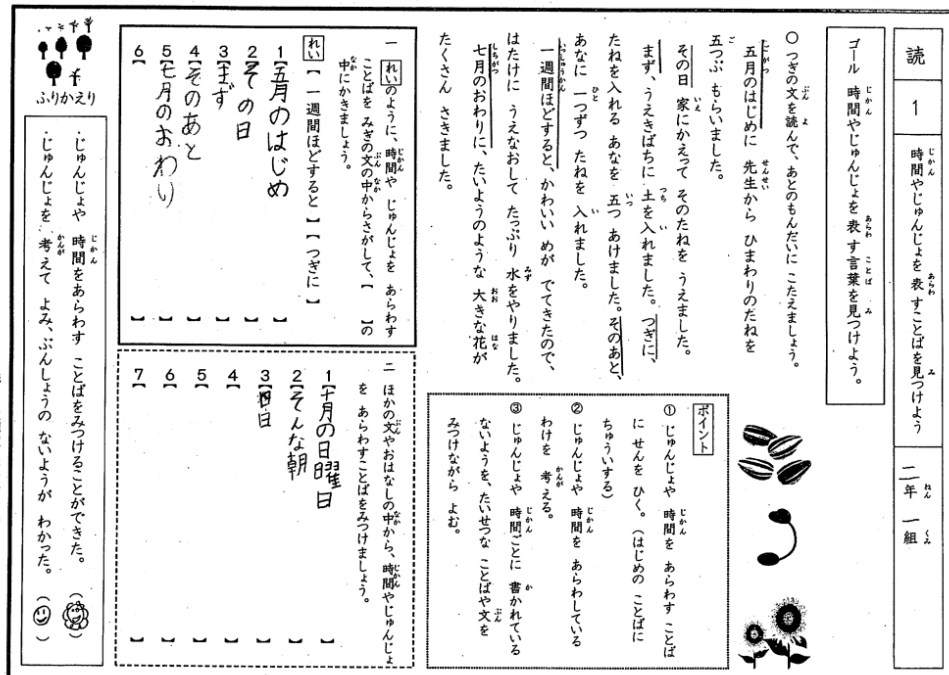 読 1 時間やじゅんじょを表すことばを見つけよう 二年 一組
ゴール 時間やじゅんじょを表す言葉を見つけよう。
○ つぎの文を読んで、あとのもんだいに こたえましょう。
五月のはじめに 先生から ひまわりのたねを
五つぶ もらいました。
その日 家にかえって そのたねを うえました。
まず、うえきばちに 土を入れました。つぎに、
たねを入れる あなを 五つ あけました。そのあと、
あなに 一つずつ たねを 入れました。
一週間ほどすると、かわいい めが でてきたので、
はたけに うえなおして たっぷり 水をやりました。
七月のおわりに、たいようのような 大きな花が
たくさん さきました。
ポイント
① じゅんじょや 時間を あらわす ことば
に せんを ひく。(はじめの ことばに
ちゅういする)
② じゅんじょや 時間を あらわしている
わけを 考える。
③ じゅんじょや 時間ごとに 書かれている
ないようを、たいせつな ことばや文を
みつけながら よむ。
一 れいのように、時間や じゅんじょを あらわす
ことばを みぎの文の中からさがして、【 】の
中にかきましょう。
れい 【 一週間ほどすると 】【 つぎに 】
1【五月のはじめ 】
2【その日 】
3【まず 】
4【そのあと 】
5【七月のおわり 】
6【 】
二 ほかの文やおはなしの中から、時間やじゅんじょ
を あらわすことばをみつけましょう。
1【十月の日曜日 】
2【そんな朝 】
3【四日 】
4【 】
5【 】
6【 】
7【 】
ふりかえり
・じゅんじょや 時間をあらわす ことばをみつけることができた。 ( )
・じゅんじょを 考えて よみ、ぶんしょうの ないようが わかった。 ( )